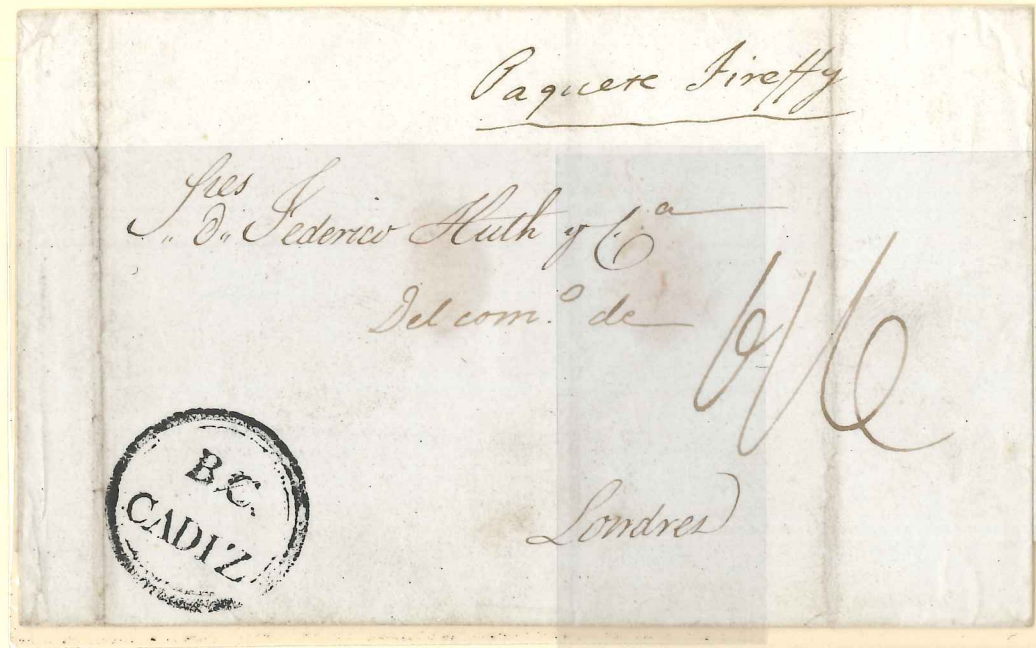 Paquete Fireffy
Sres
D. Federico Huth y C.ª
Del com.º de
6/6
Londres
B.C.
CADIZ